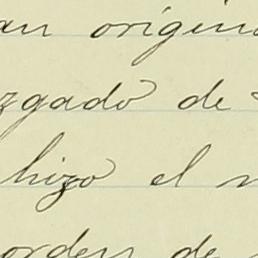 an origin
zgado de
hizo el
orden de